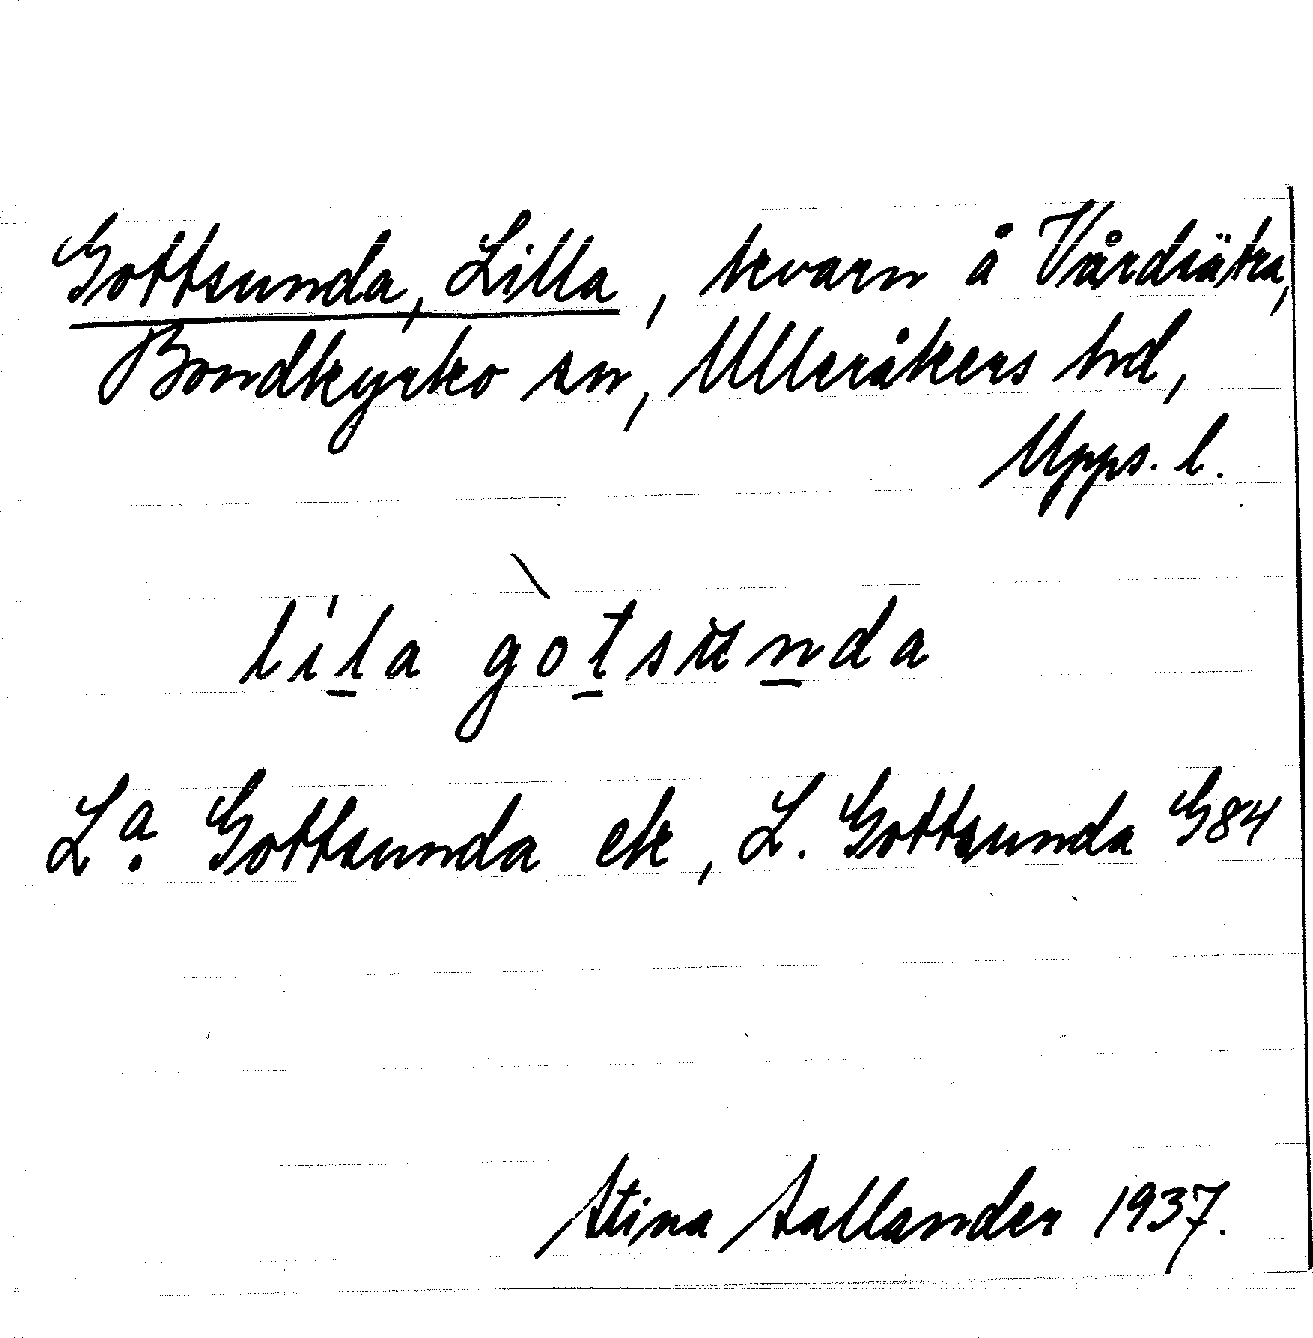 Gottsunda, Lilla, kvarn å Vårdsätra,
Bondkyrko sn, Ulleråkers hd,
Upps. l.
li̍l̲a gòt̲sun̲da
L:a Gottsunda ek, L. Gottsunda G84
Stina Sallander 1937.